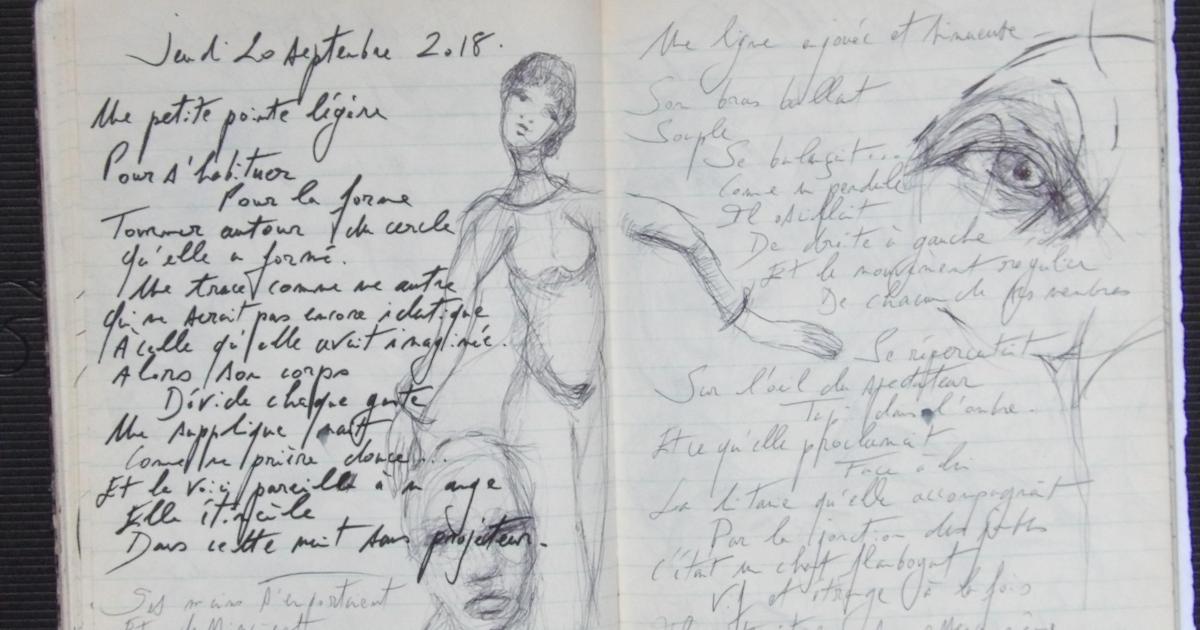 Jeudi 20 septembre 2018.
Une petite pointe légère
Pour s'habituer
Pour la forme
Tourner autour du cercle
qu'elle a formé.
Une trace comme une autre
qui ne serait pas encore identique
À celle qu'elle avait imaginée.
Alors son corps
Dévide chaque geste
Une supplique naît
Comme une prière douce...
Et la voici pareille à un ange
Elle étincelle
Dans cette nuit sans projecteur.
Ses mains s'emportaient
Et
Une ligne enjouée et sinueuse
Son bras ballant
Souple
Se balançait...
Comme un pendule
Il oscillait
De droite à gauche
Et le mouvement régulier
De chacun de ses membres
Se répercutait
Sur l'œil du spectateur
Tapi dans l'ombre.
Et ce qu'elle proclamait
Face à lui
La litanie qu'elle accompagnait
Par la jonction des
c'était un chant flamboyant
Vif et étrange à la fois